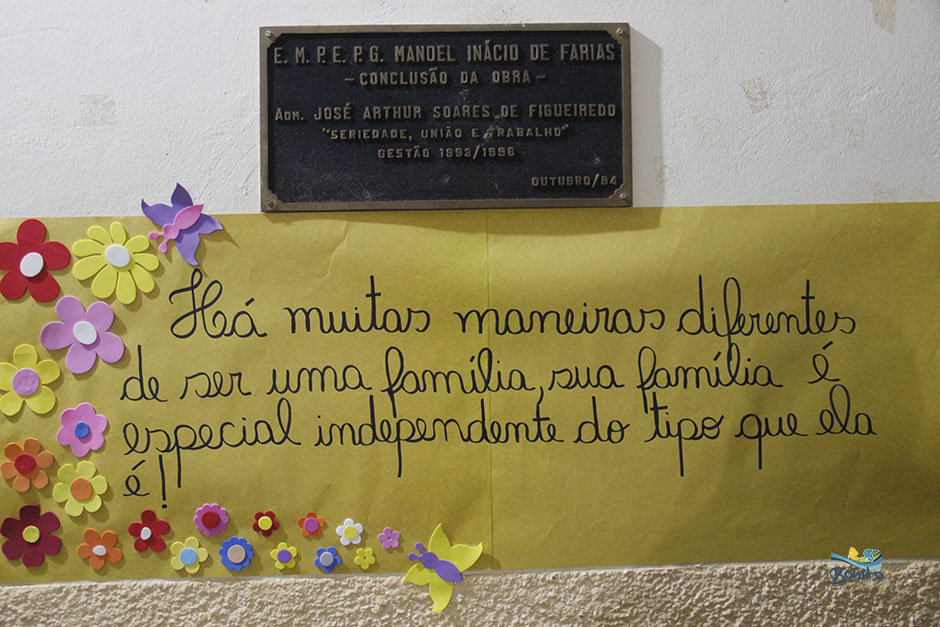 E. M. P. E. P. G. MANOEL INÁCIO DE FARIAS
- CONCLUSÃO DA OBRA -
ADM. JOSÉ ARTHUR SOARES DE FIGUEIREDO
"SERIEDADE, UNIÃO E TRABALHO"
GESTÃO 1993/1996
OUTUBRO/94
Há muitas maneiras diferentes
de ser uma família, sua família é
especial independente do tipo que ela
é!
Bonito